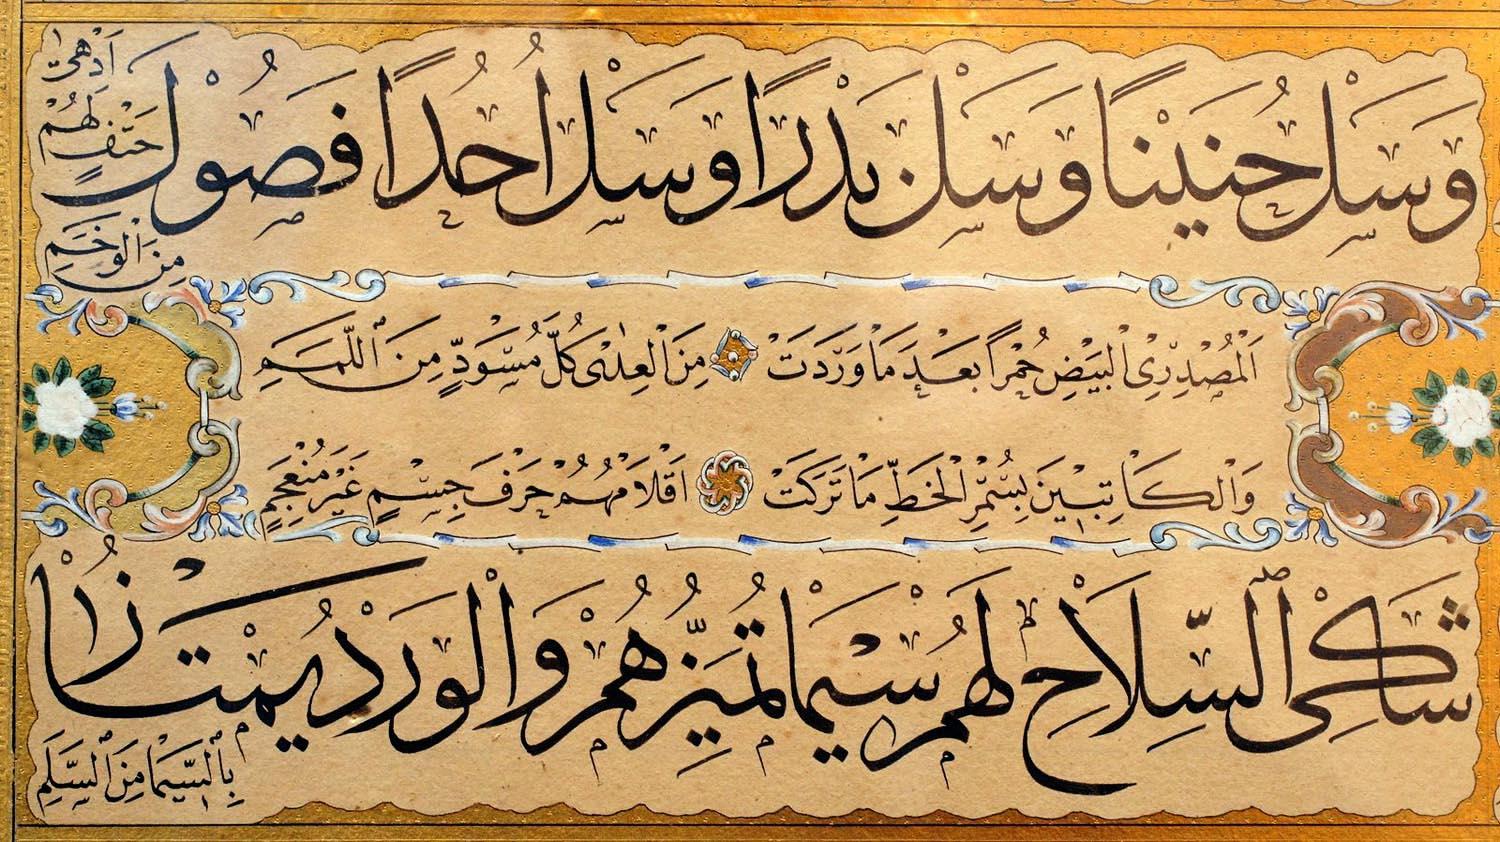 وَسَلْ حُنَيْنًا وَسَلْ بَدْرًا وَسَلْ أُحُدًا فُصُولَ
حَتْفٍ لَهُمْ
اَدْهٰى
مِنَ الْوَخَمِ
اَلْمُصْدِرِي الْبِيضِ حُمْرًا بَعْدَ مَا وَرَدَتْ مِنَ الْعِدٰى كُلَّ مُسْوَدٍّ مِنَ اللِّمَمِ
وَالْكَاتِبِينَ بِسُمْرِ الْخَطِّ مَا تَرَكَتْ اَقْلَامُهُمْ حَرْفَ جِسْمٍ غَيْرَ مُنْعَجِمِ
شَاكِي السِّلَاحِ لَهُمْ سِيمَا تُمَيِّزُهُمْ وَالْوَرْدُ يَمْتَازُ
بِالسِّيمَا مِنَ السَّلَمِ